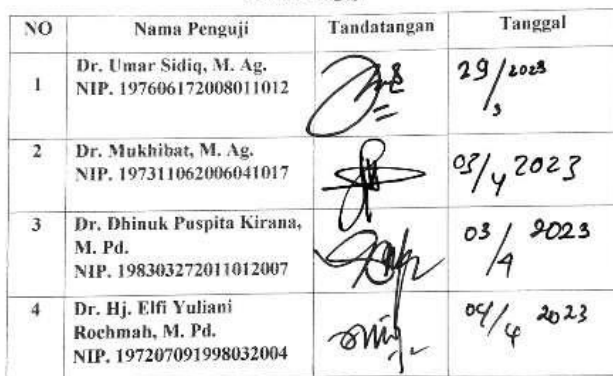 NO Nama Penguji Tandatangan Tanggal
1 Dr. Umar Sidiq, M. Ag.
NIP. 197606172008011012
29/3 2023
2 Dr. Mukhibat, M. Ag.
NIP. 197311062006041017
03/4 2023
3 Dr. Dhinuk Puspita Kirana,
M. Pd.
NIP. 198303272011012007
03/4 2023
4 Dr. Hj. Elfi Yuliani
Rochmah, M. Pd.
NIP. 197207091998032004
04/4 2023